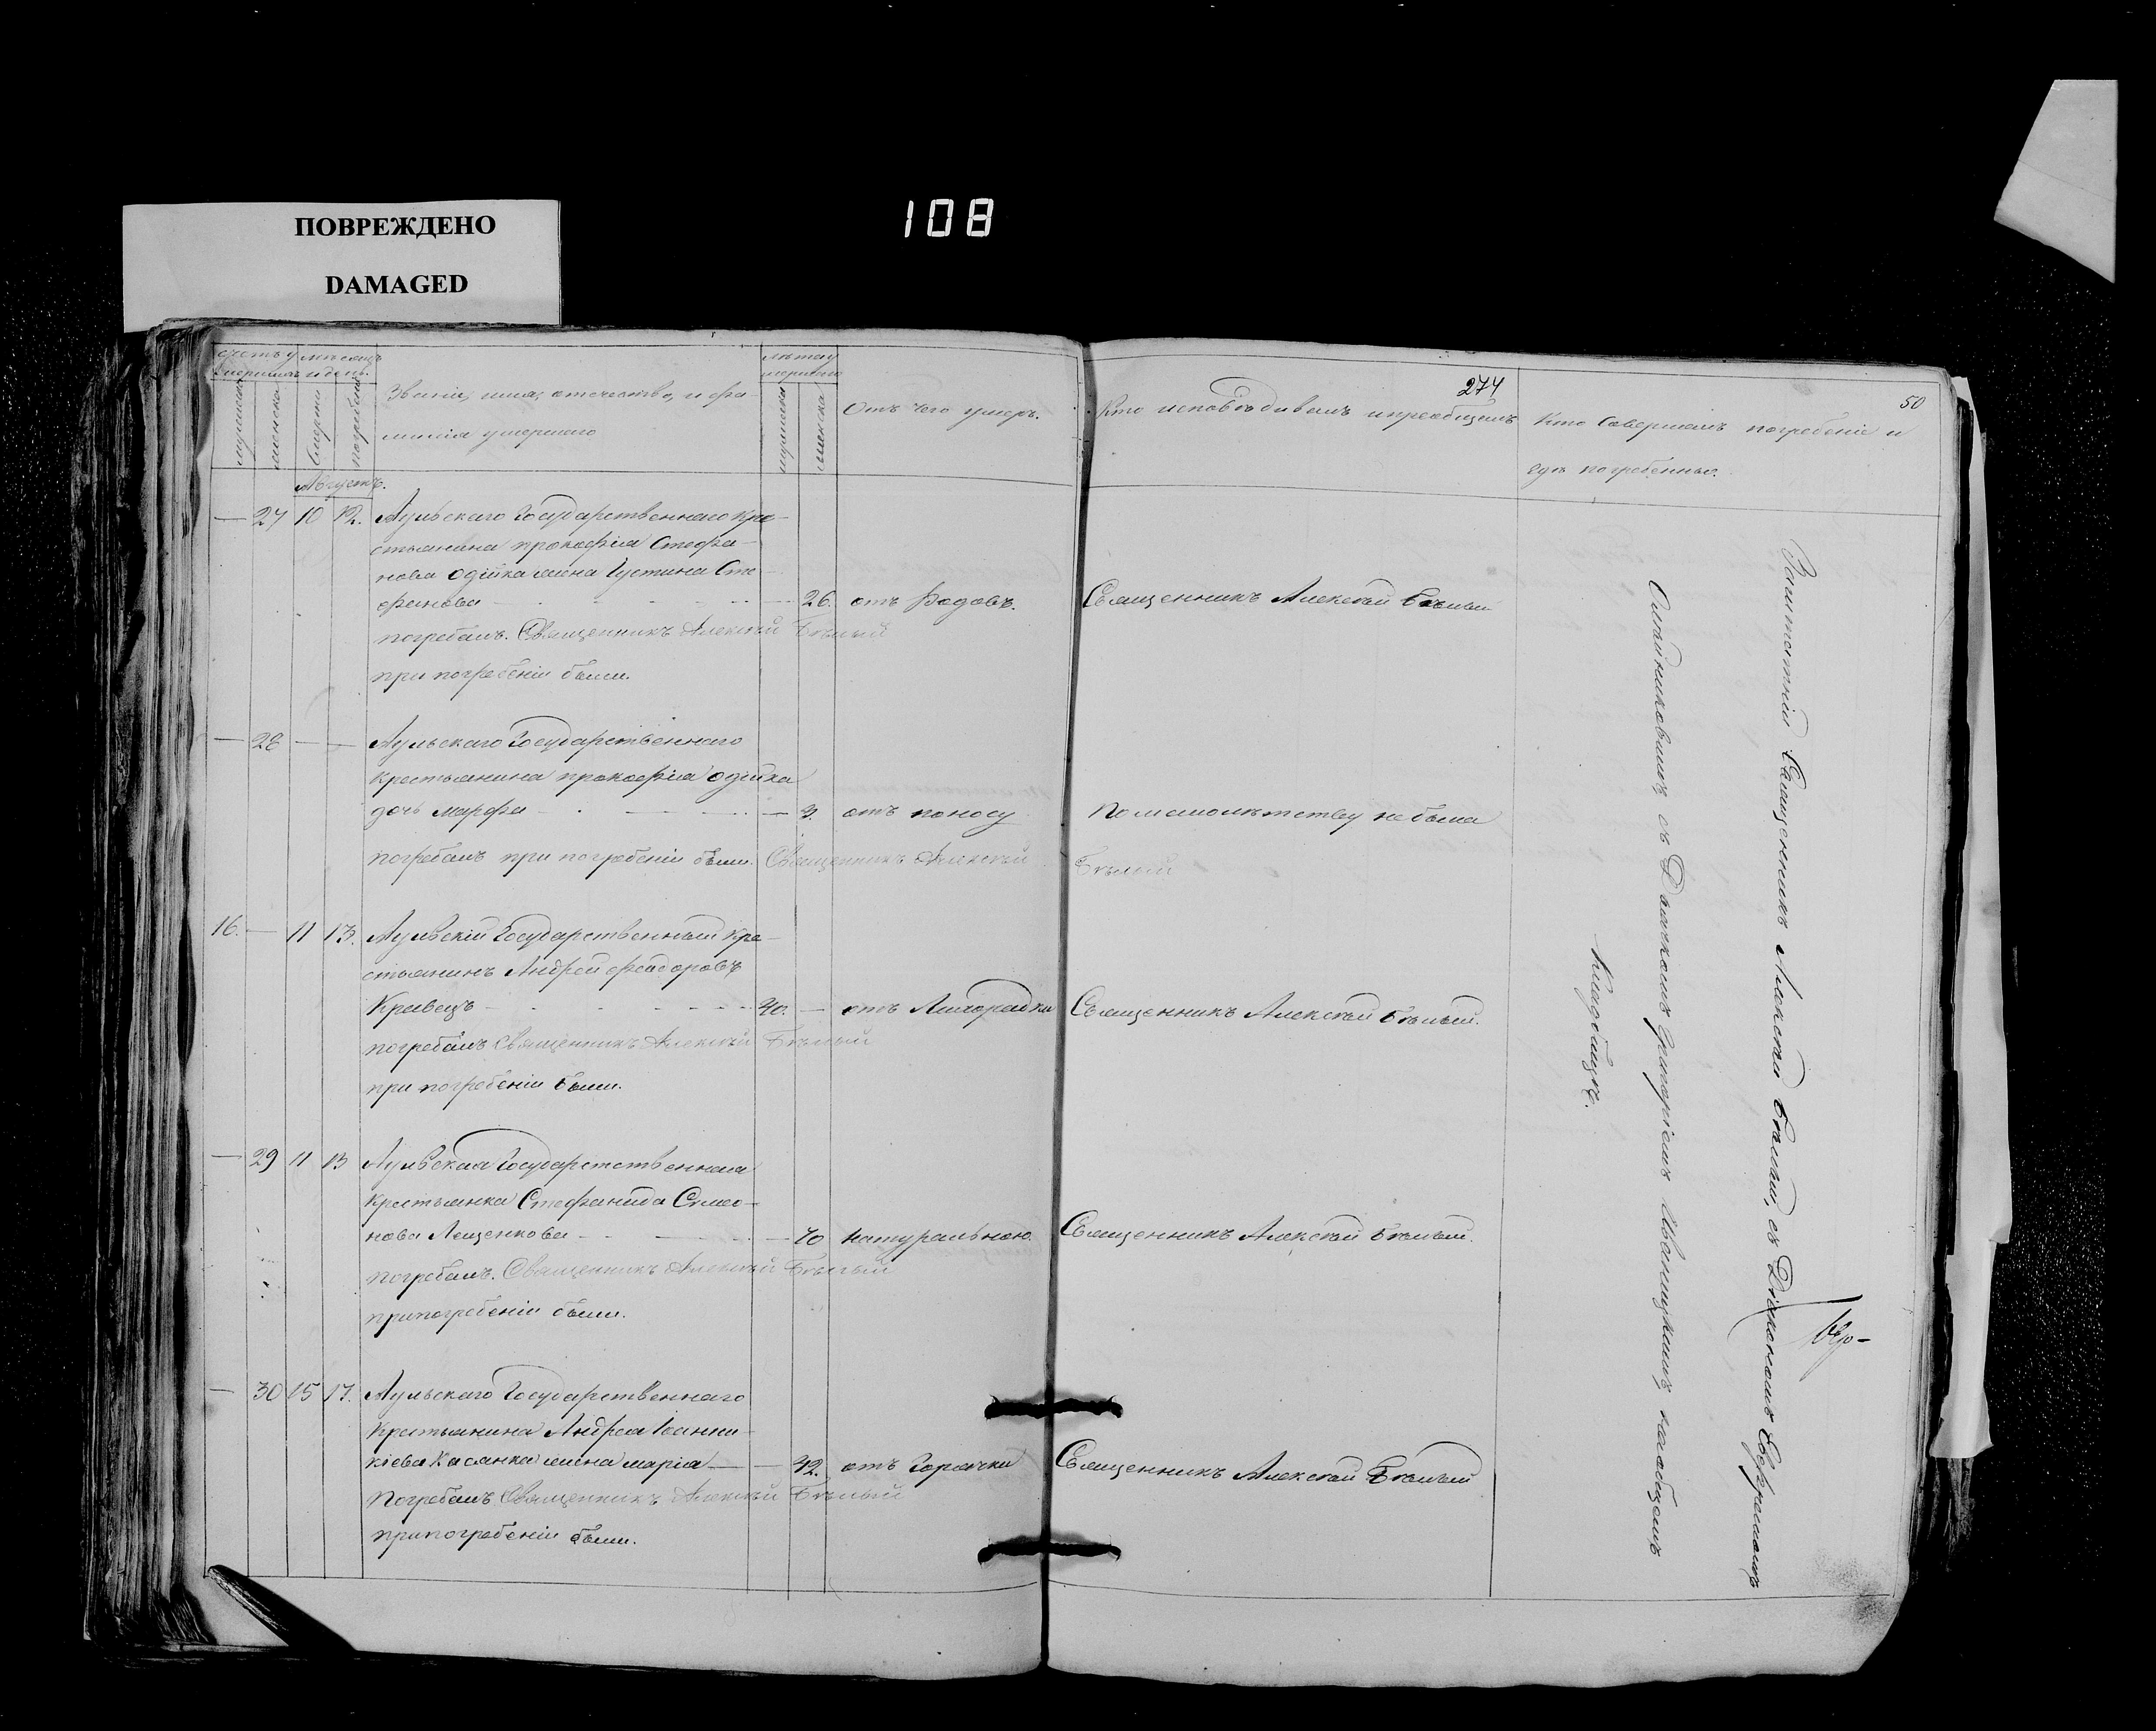 ПОВРЕЖДЕНО
DAMAGED
108
274
50
счетъ умершихъ
мѣсяцъ и день.
мужеска
женска
смерти
погребенія
Званіе, имя, отечество, и фа-
милія умершаго
лѣта умершаго
мужеска
женска
Отъ чего умеръ.
Кто исповѣдывалъ и пріобщалъ
Кто совершалъ погребеніе и
гдѣ погребенны.
Августъ.
— 27 10 12. Аульскаго Государственнаго кре-
стьянина прокофія Стефа-
нова Одійка жена Іустина Сте-
фанова — 26. отъ родовъ. Священникъ Алексѣй Бѣлый
погребалъ. Священникъ Алексѣй Бѣлый
при погребеніи были.
— 28 — — Аульскаго Государственнаго
крестьянина прокофія Одійка
дочь марфа — 3. отъ поносу По малолѣтству не была
погребалъ при погребеніи были. Священникъ Алексѣй Бѣлый
16. — 11 13. Аульскій Государственный кре-
стьянинъ Андрей феодоровъ
Кравецъ 40. — отъ Лихорадки Священникъ Алексѣй Бѣлый.
погребалъ Священникъ Алексѣй Бѣлый
при погребеніи были.
— 29 11 13 Аульская Государственная
крестьянка Стефанида Симео-
нова Лещенкова — 70 натурально. Священникъ Алексѣй Бѣлый.
погребалъ. Священникъ Алексѣй Бѣлый
при погребеніи были.
— 30 15 17. Аульскаго Государственнаго
крестьянина Андрея Іоанни-
кіева Касянка жена марія — 42. отъ Горячки Священникъ Алексѣй Бѣлый
погребалъ Священникъ Алексѣй Бѣлый
при погребеніи были.
Священникъ Алексѣй Бѣлый, съ Діакономъ Евфимомъ
съ Дьячкомъ Григоріемъ Иваницкимъ, на общемъ
Кладбищѣ.